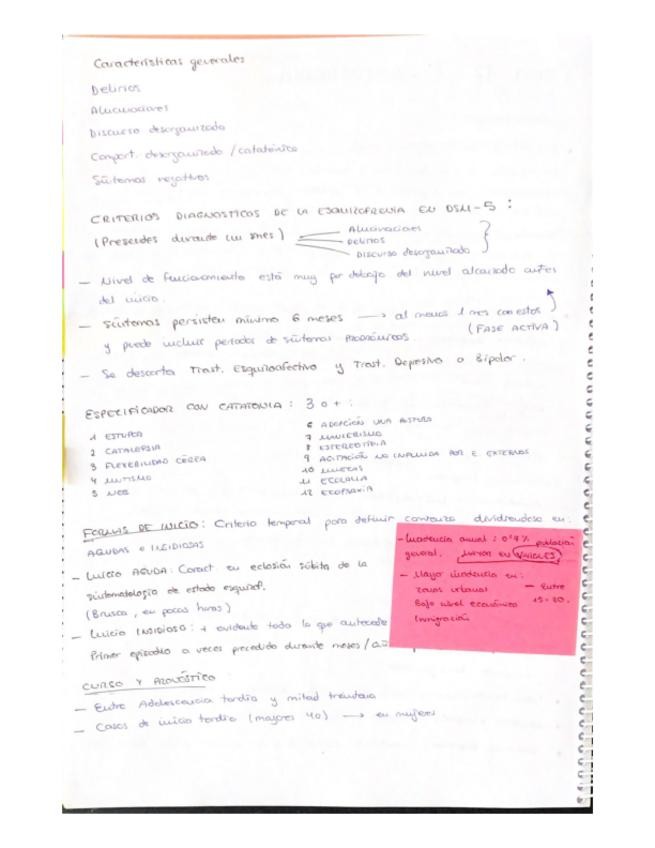 Características generales
Delirios
Alucinaciones
Discurso desorganizado
Comport. desorganizado / catatónico
Síntomas negativos
CRITERIOS DIAGNOSTICOS DE LA ESQUIZOFRENIA EN DSM-5 :
(Presentes durante un mes)
Alucinaciones
DELIRIOS
DISCURSO desorganizado
- Nivel de funcionamiento está muy por debajo del nivel alcanzado antes
del inicio.
- Síntomas persisten mínimo 6 meses → al menos 1 mes con estos
(FASE ACTIVA)
y puede incluir periodos de síntomas PRODRÓMICOS.
- Se descarta Trast. Esquizoafectivo y Trast. Depresivo o Bipolar.
ESPECIFICADOR CON CATATONIA : 3 o + :
1 ESTUPOR
2 CATALEPSIA
3 FLEXIBILIDAD CÉREA
4 MUTISMO
5 NEG
6 ADOPCIÓN UNA POSTURA
7 MANIERISMO
8 ESTEREOTIPIA
9 AGITACIÓN NO INFLUIDA POR E. EXTERNOS
10 MUECAS
11 ECOLALIA
12 ECOPRAXIA
FORMAS DE INICIO : Criterio temporal para definir comienzo dividiendose en:
AGUDAS e INSIDIOSAS
- Inicio AGUDA : Caract eu eclosión súbita de la
sintomatología de estado esquizof.
(Brusca, en pocas horas)
- Inicio INSIDIOSO : + evidente todo lo que antecede
Primer episodio a veces precedido durante meses / a
- Incidencia anual : 0'4% población
general. Mayor en VARONES
- Mayor incidencia en :
zonas urbanas
Bajo nivel económico
Inmigración
- Entre
15-20.
CURSO Y PRONÓSTICO
- Entre Adolescencia tardía y mitad treintena
- Casos de inicio tardío (mayores 40) → en mujeres